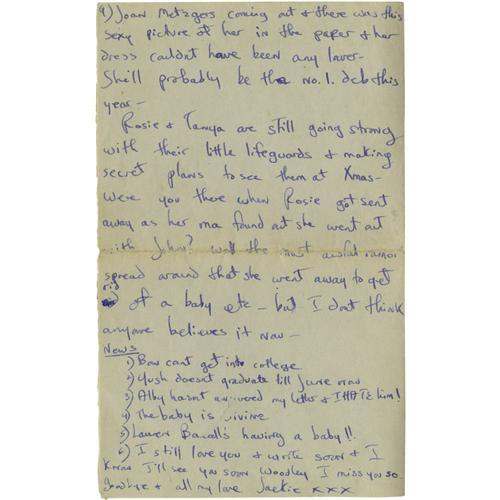 9) Joan Metzgers coming out & there was this
sexy picture of her in the paper & her
dress couldnt have been any lower -
She'll probably be the no. 1. deb this
year -
Rosie & Tanya are still going strong
with their little lifeguards & making
secret plans to see them at Xmas -
Were you there when Rosie got sent
away as her ma found out she went out
with John? well the most awful rumor
spread around that she went away to get
rid of a baby etc - but I dont think
anyone believes it now -
News
1) Bow cant get into college
2) Yush doesn't graduate till June now
3) Alby hasnt answered my letter & I HATE him!
4) The baby is divine
5) Lauren Bacall's having a baby!!
6) I still love you & write soon & I
know I'll see you soon Woodley I miss you so
Goodbye & all my love Jackie XXX